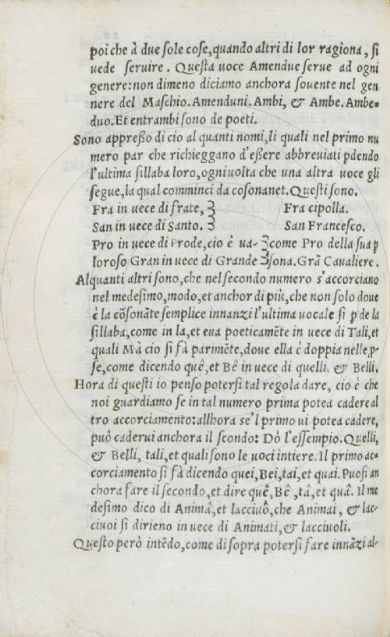 poi che à due sole cose, quando altri di lor ragiona, si
vede servire. Questa voce Amendue serve ad ogni
genere: non dimeno diciamo anchora sovente nel gen
nere del Maschio. Amenduni. Ambi, & Ambe. Ambe-
duo. Et entrambi sono de poeti.
Sono appresso di cio al quanti nomi, li quali nel primo nu
mero par che richieggano d'essere abbreviati pdendo
l'ultima sillaba loro, ogni volta che una altra voce gli
segue, la qual comminci da cosonanet. Questi sono.
Fra in vece di frate, Fra cipolla.
San in vece di Santo. San Francesco.
Pro in vece di Prode, cio è va- come Pro della sua p
loroso Gran in vece di Grande sona. Grã Cavaliere.
Alquanti altri sono, che nel secondo numero s'accorciano
nel medesimo, modo, et anchor di più, che non solo dove
è la cõsonãte semplice innanzi l'ultima vocale si pde la
sillaba, come in la, et eva poeticamẽte in vece di Tali, et
quali Mà cio si fà parimẽte, dove ella è doppia nelle p
se, come dicendo quê, et Bê in vece di quelli. & Belli.
Hora di questi io penso potersi tal regola dare, cio è che
noi guardiamo se in tal numero prima potea cadere al
tro accorciamento: allhora se'l primo vi potea cadere,
può cadervi anchora il scondo: Dò l'essempio. Quelli,
& Belli, tali, et quali sono le voci intiere. Il primo ac-
corciamento si fà dicendo quei, Bei, tai, et quai. Puosi an
chora fare il secondo, et dire quê, Bê, tâ, et quâ. Il me
desimo dico di Animâ, et lacciuô, che Animai, & lac-
civoi si dirieno in vece di Animati, & laccivoli.
Questo però intẽdo, come di sopra potersi fare innãzi al-